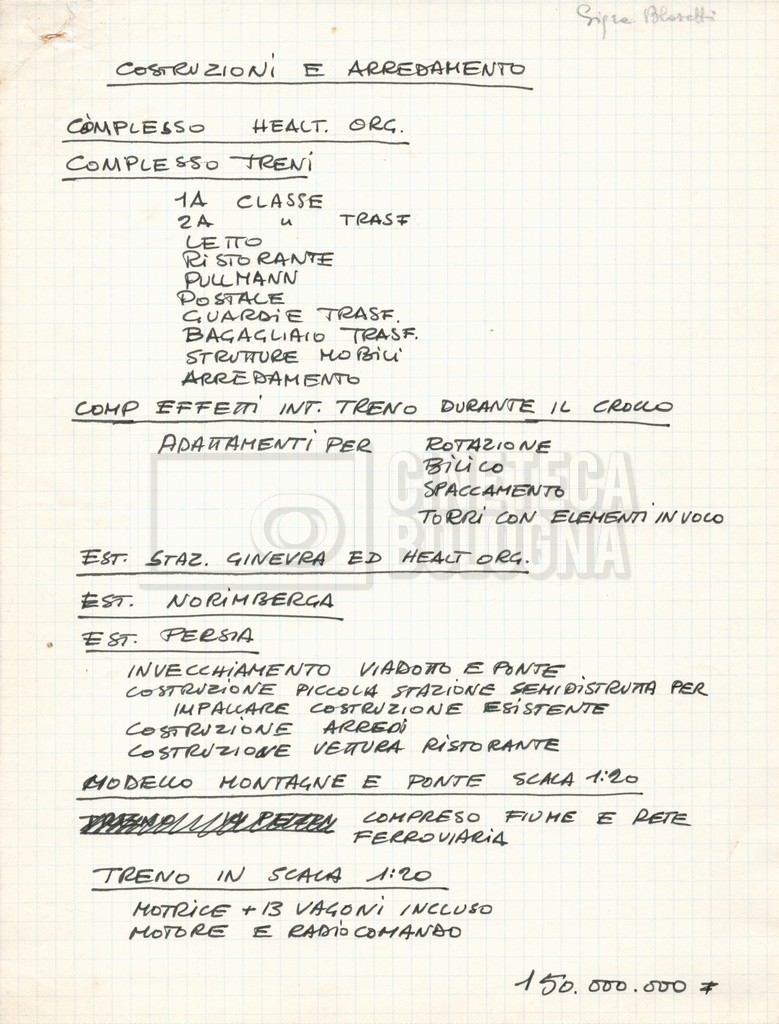 Sigra Blasetti
COSTRUZIONI E ARREDAMENTO
COMPLESSO HEALT. ORG.
COMPLESSO TRENI
1A CLASSE
2A " TRASF
LETTO
RISTORANTE
PULLMANN
POSTALE
GUARDIE TRASF.
BAGAGLIAIO TRASF.
STRUTTURE MOBILI
ARREDAMENTO
COMP EFFETTI INT. TRENO DURANTE IL CROLLO
ADATTAMENTI PER ROTAZIONE
BILICO
SPACCAMENTO
TORRI CON ELEMENTI IN VOLO
CINETECA
BOLOGNA
EST. STAZ. GINEVRA ED HEALT ORG.
EST. NORIMBERGA
EST. PERSIA
INVECCHIAMENTO VIADOTTO E PONTE
COSTRUZIONE PICCOLA STAZIONE SEMIDISTRUTTA PER
IMPALLARE COSTRUZIONE ESISTENTE
COSTRUZIONE ARREDI
COSTRUZIONE VETTURA RISTORANTE
MODELLO MONTAGNE E PONTE SCALA 1:20
COMPRESO FIUME E RETE
FERROVIARIA
TRENO IN SCALA 1:20
MOTRICE + 13 VAGONI INCLUSO
MOTORE E RADIOCOMANDO
150.000.000